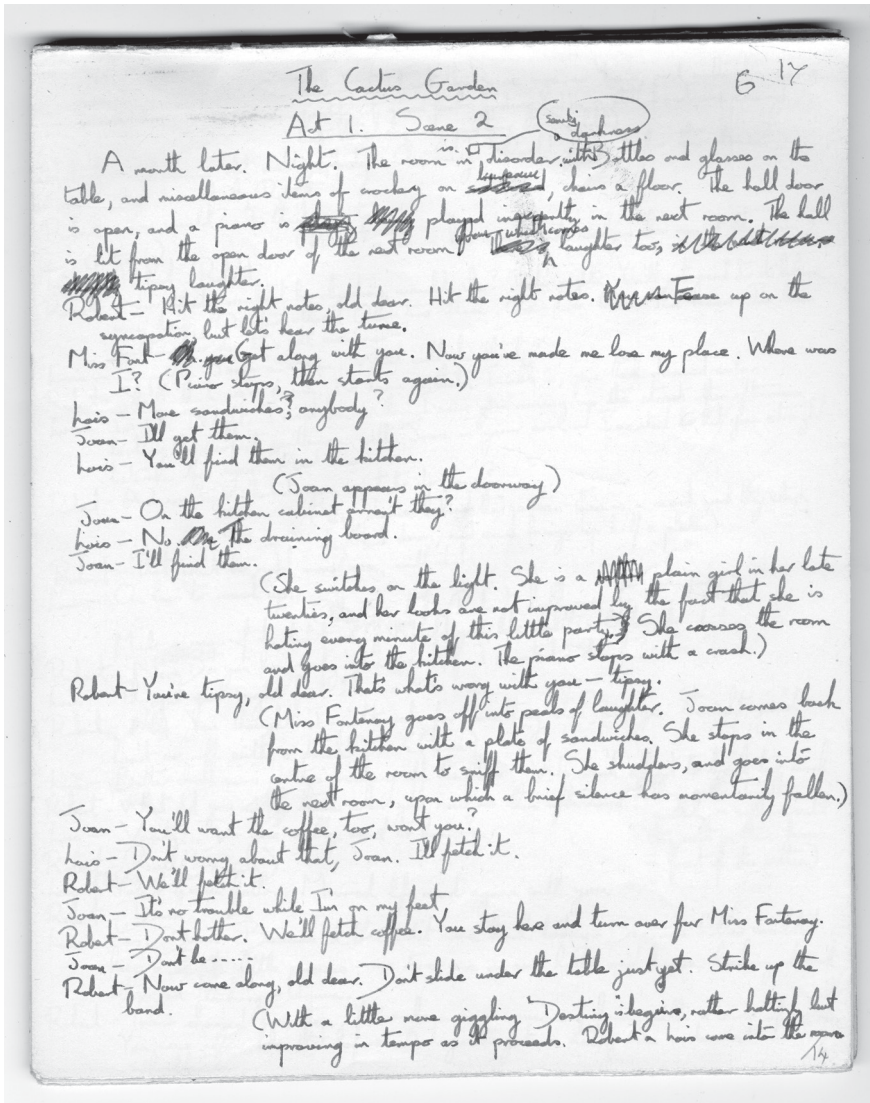 The Cactus Garden
6 17
Act 1. Scene 2
semi darkness
is in
A month later. Night. The room in disorder. with Bottles and glasses on the
table, and miscellaneous items of crockery on, chairs & floor. The hall door
is open, and a piano is played in the next room. The hall
is lit from the open door of the next room from which comes laughter too,
tipsy laughter.
Robert - Hit the right notes, old dear. Hit the right notes. Ease up on the
syncopation, but let's hear the tune.
Miss Font - Get along with you. Now you've made me lose my place. Where was
I? (Piano stops, then starts again.)
Lois - More sandwiches, anybody?
Joan - I'll get them.
Lois - You'll find them in the kitchen.
(Joan appears in the doorway)
Joan - On the kitchen cabinet aren't they?
Lois - No. The draining board.
Joan - I'll find them.
(She switches on the light. She is a plain girl in her late
twenties, and her looks are not improved by the fact that she is
hating every minute of this little party. She crosses the room
and goes into the kitchen. The piano stops with a crash.)
Robert - You're tipsy, old dear. That's what's wrong with you - tipsy.
(Miss Fontenoy goes off into peals of laughter. Joan comes back
from the kitchen with a plate of sandwiches. She stops in the
centre of the room to sniff them. She shudders, and goes into
the next room, upon which a brief silence has momentarily fallen.)
Joan - You'll want the coffee, too, won't you?
Lois - Don't worry about that, Joan. I'll fetch it.
Robert - We'll fetch it.
Joan - It's no trouble while I'm on my feet.
Robert - Don't bother. We'll fetch coffee. You stay here and turn over for Miss Fontenoy.
Joan - Don't be .....
Robert - Now come along, old dear. Don't slide under the table just yet. Strike up the
band.
(With a little more giggling 'Destiny' begins, rather haltingly but
improving in tempo as it proceeds. Robert & Lois come into the room
/14